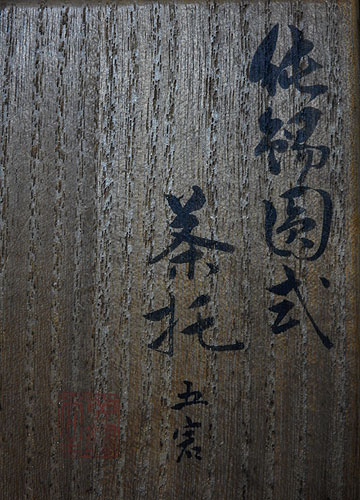 純錫圓式
茶托
五客